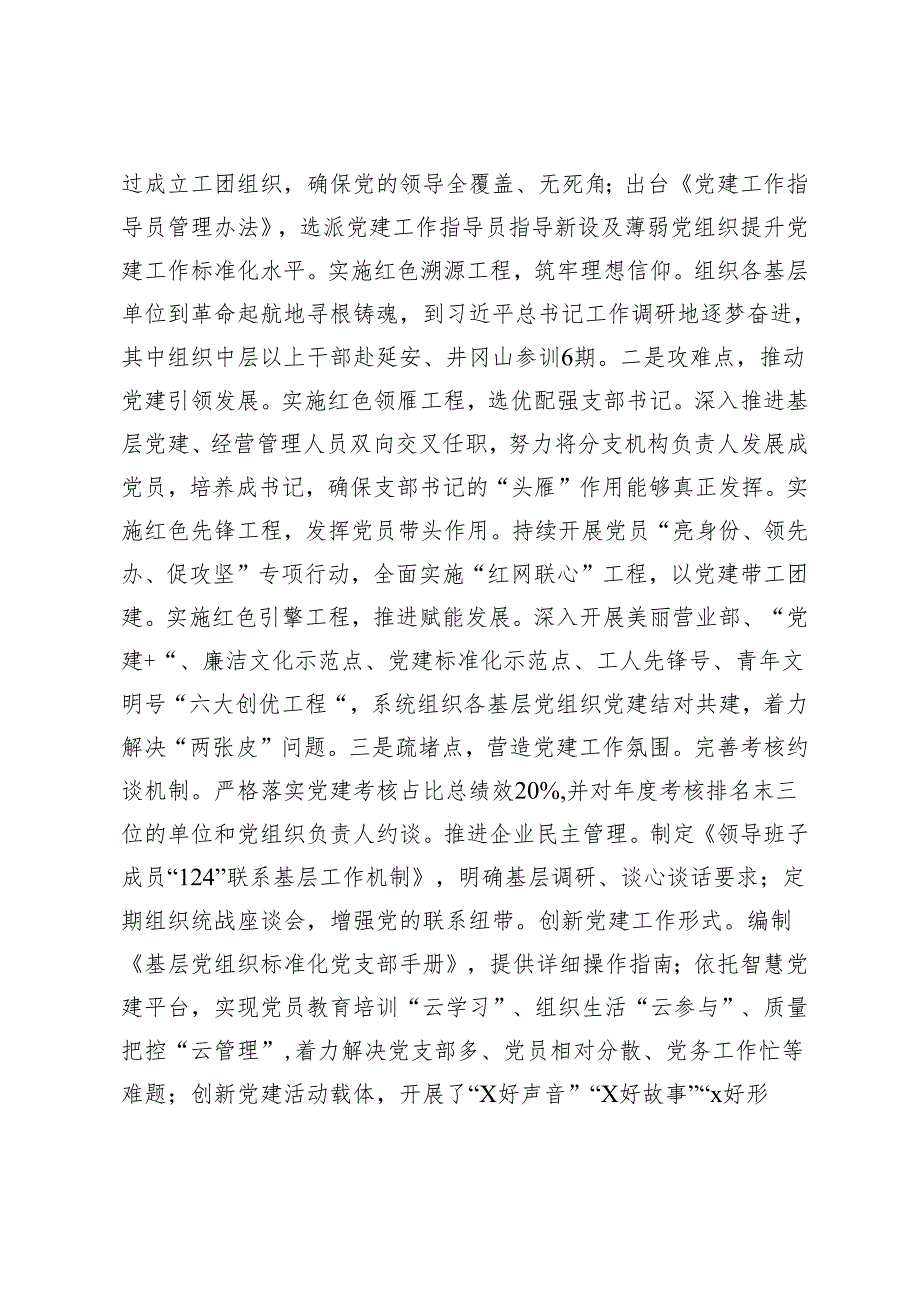 过成立工团组织，确保党的领导全覆盖、无死角；出台《党建工作指
导员管理办法》，选派党建工作指导员指导新设及薄弱党组织提升党
建工作标准化水平。实施红色溯源工程，筑牢理想信仰。组织各基层
单位到革命起航地寻根铸魂，到习近平总书记工作调研地逐梦奋进，
其中组织中层以上干部赴延安、井冈山参训6期。二是攻难点，推动
党建引领发展。实施红色领雁工程，选优配强支部书记。深入推进基
层党建、经营管理人员双向交叉任职，努力将分支机构负责人发展成
党员，培养成书记，确保支部书记的“头雁”作用能够真正发挥。实
施红色先锋工程，发挥党员带头作用。持续开展党员“亮身份、领先
办、促攻坚”专项行动，全面实施“红网联心”工程，以党建带工团
建。实施红色引擎工程，推进赋能发展。深入开展美丽营业部、“党
建+“、廉洁文化示范点、党建标准化示范点、工人先锋号、青年文
明号“六大创优工程“，系统组织各基层党组织党建结对共建，着力
解决“两张皮”问题。三是疏堵点，营造党建工作氛围。完善考核约
谈机制。严格落实党建考核占比总绩效20%,并对年度考核排名末三
位的单位和党组织负责人约谈。推进企业民主管理。制定《领导班子
成员“124”联系基层工作机制》，明确基层调研、谈心谈话要求；定
期组织统战座谈会，增强党的联系纽带。创新党建工作形式。编制
《基层党组织标准化党支部手册》，提供详细操作指南；依托智慧党
建平台，实现党员教育培训“云学习”、组织生活“云参与”、质量
把控“云管理”,着力解决党支部多、党员相对分散、党务工作忙等
难题；创新党建活动载体，开展了“X好声音”“X好故事”“x好形